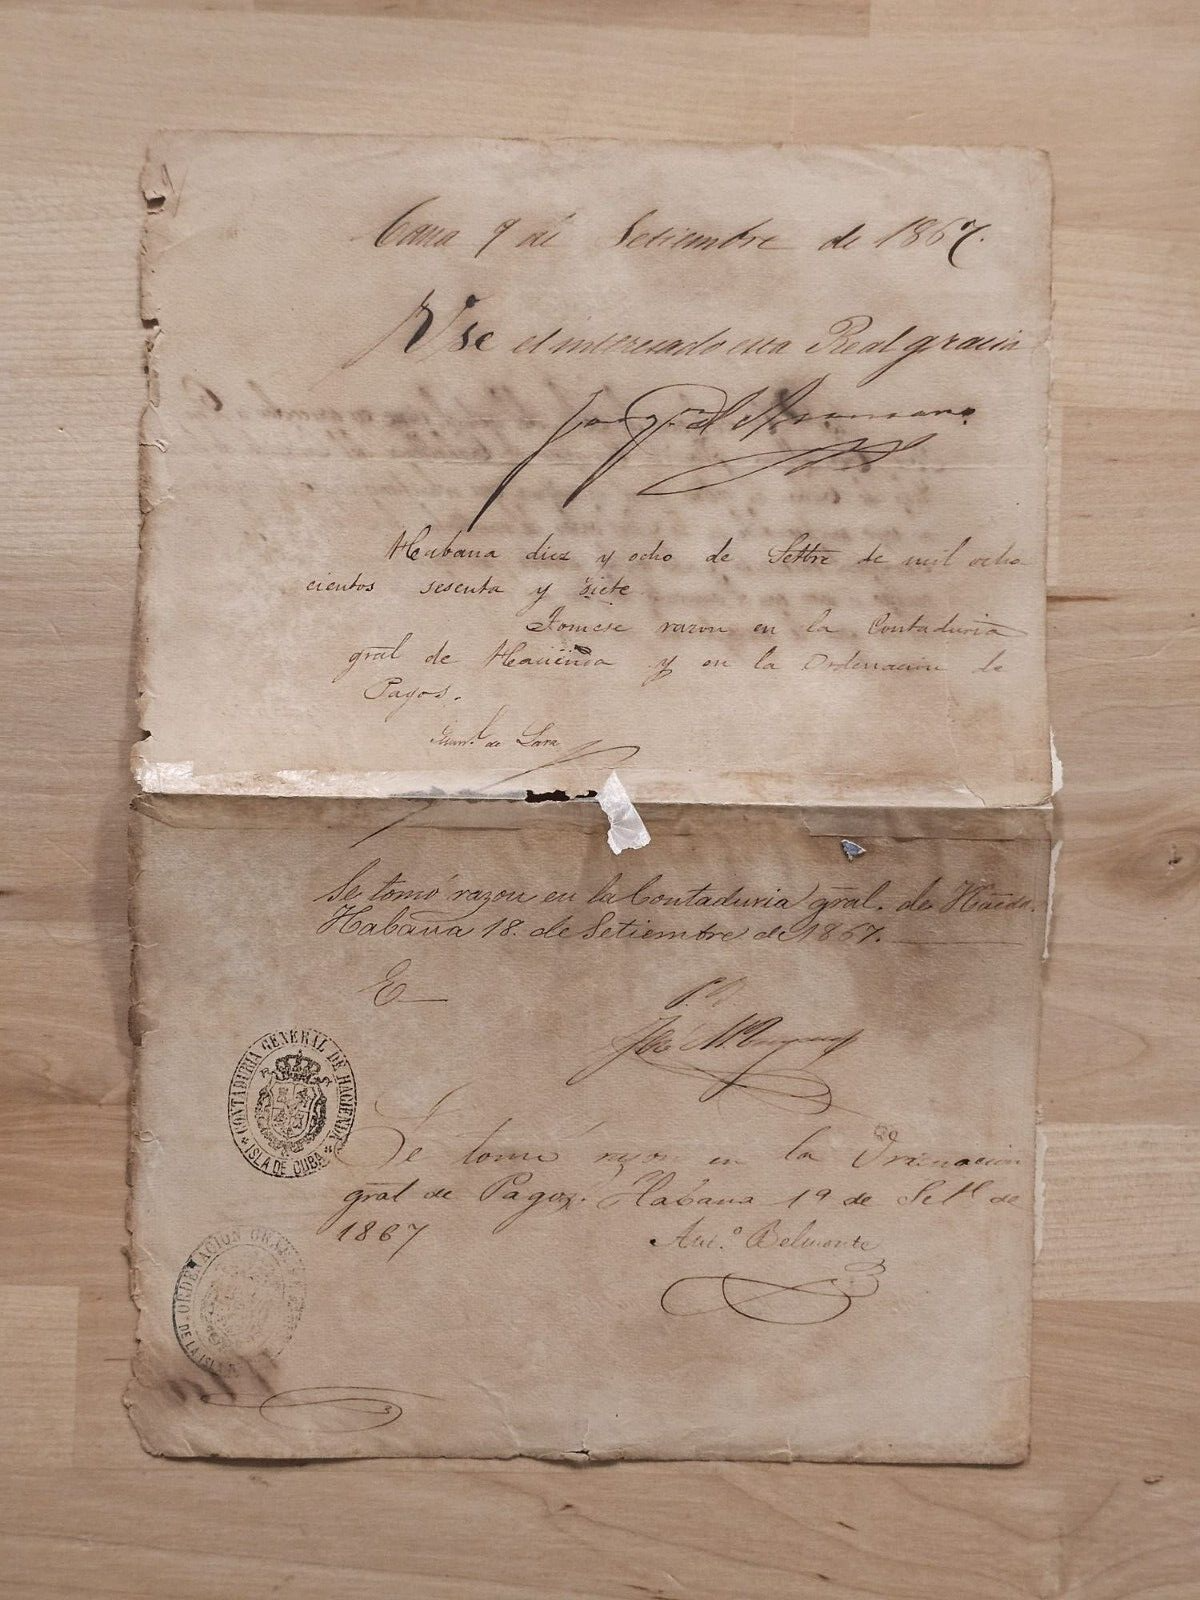 9 de Setiembre de 1867.
Use el interesado esta Real gracia
Habana diez y ocho de Setbre de mil ocho
cientos sesenta y siete
Tomese razon en la Contaduria
gral de Hacienda y en la Ordenacion de
Pagos.
de Lara
Se tomó razon en la Contaduria gral. de Hacda.
Habana 18. de Setiembre de 1867.
CONTADURIA GENERAL DE HACIENDA
ISLA DE CUBA
Se tomó razon en la Ordenacion
gral de Pagos. Habana 19 de Set.e de
1867
Ant.º Belmonte
ORDENACION GRAL
DE LA ISLA